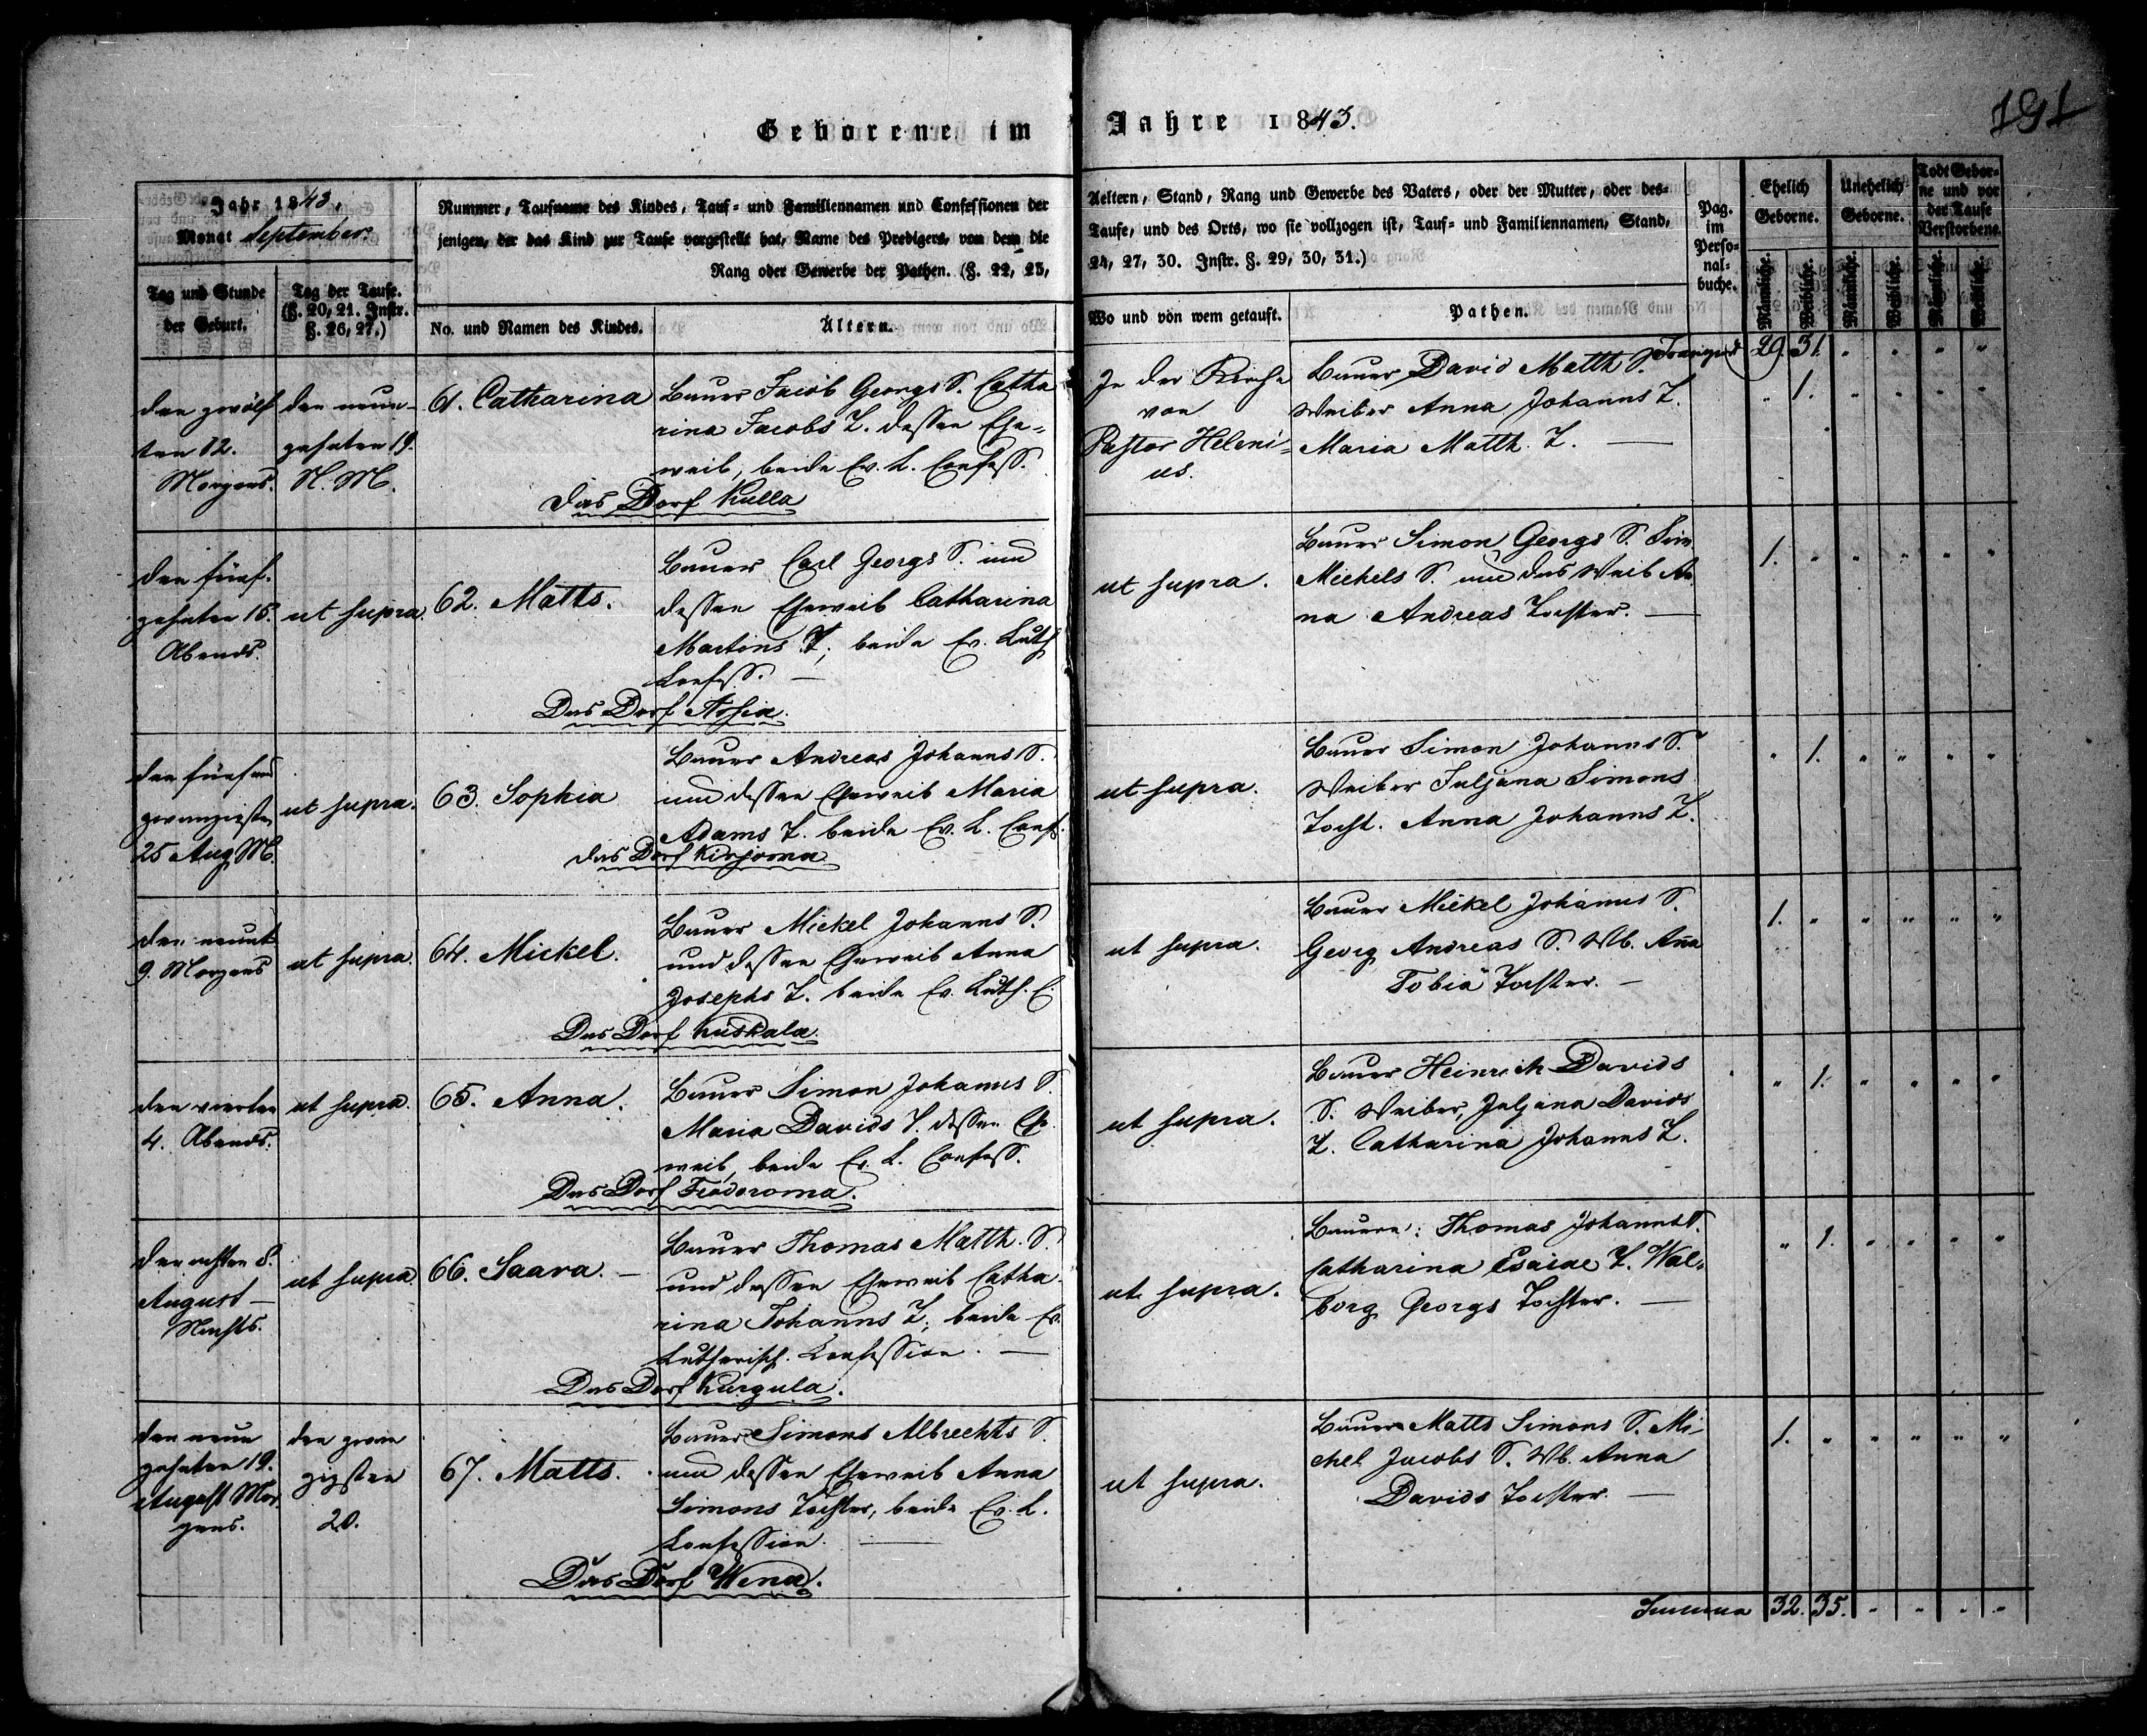 191
Geborene im Jahre 1843.
Jahr 1843.
Monat September.
Tag und Stunde
der Geburt.
Tag der Taufe.
(§. 20, 21. Instr.
§. 26, 27.)
Nummer, Taufname des Kindes, Tauf- und Familiennamen und Confessionen der
jenigen, der das Kind zur Taufe vorgestellt hat, Name des Predigers, von dem die
Rang oder Gewerbe der Pathen. (§. 22, 23,
No. und Namen des Kindes.
Ältern.
Aeltern, Stand, Rang und Gewerbe des Vaters, oder der Mutter, oder des-
Taufe, und des Orts, wo sie vollzogen ist, Tauf- und Familiennamen, Stand,
24, 27, 30. Instr. §. 29, 30, 31.)
Wo und von wem getauft.
Pathen.
Pag.
im
Perso-
nal-
buche.
Ehelich
Geborne.
Unehelich
Geborne.
Todt Gebor-
ne und vor
der Taufe
Verstorbene.
Männliche.
Weibliche.
Männliche.
Weibliche.
Männliche.
Weibliche.
Transport 29. 31. " " " "
den zwölf
ten 12.
Morgens.
den neun-
zehnten 19.
N. M.
61. Catharina
Bauer Jacob Georgs S. Catha
rina Jacobs T. dessen Ehe-
weib, beide Ev. L. Confess.
das Dorf Kulla
In der Kirche
von
Pastor Heleni-
us.
Bauer David Matth S.
Weiber Anna Johanns T.
Maria Matth. T. —
" 1. " " " "
den fünf-
zehnten 15.
Abends.
ut supra.
62. Matts.
Bauer Carl Georgs S. und
dessen Eheweib Catharina
Martins T., beide Ev. Luth
Confess. —
Das Dorf
ut supra.
Bauer Simon Georgs S.
Michels S. und das Weib An
na Andreas Tochter. —
1. " " " " "
den fünf und
zwanzigsten
25 Aug. M.
ut supra.
63. Sophia
Bauer Andreas Johanns S.
und dessen Eheweib Maria
Adams T. beide Ev. L. Conf.
das Dorf Kirjoma
ut supra.
Bauer Simon Johanns S.
Weiber Juljana Simons
Tocht. Anna Johanns T.
" 1. " " " "
den neunt
9. Morgens
ut supra.
64. Mickel.
Bauer Mickel Johanns S.
und dessen Eheweib Anna
Josephs T. beide Ev. Luth. C.
Das Dorf Kuskala.
ut supra.
Bauer Mickel Johanns S.
Georg Andreas S. Wb. Aña
Tobiä Tochter. —
1. " " " " "
den vierten
4. Abends.
ut supra.
65. Anna.
Bauer Simon Johanns S
Maria Davids T. dessen Eh
weib, beide Ev. L. Confess.
Das Dorf Feodoroma.
ut supra.
Bauer Heinrich Davids
S. Weiber, Juljana Davids
T. Catharina Johanns T.
" 1. " " " "
den achten 8.
August —
Nachts.
ut supra.
66. Saara. —
Bauer Thomas Matth. S.
und dessen Eheweib Catha
rina Johanns T., beide Ev.
Lutherisch. Confession. —
Das Dorf Kurgula.
ut supra.
Bauern: Thomas Johanns S.
Catharina Esaiae T. Wal-
borg Georgs Tochter. —
" 1. " " " "
den neun
zehnten 19.
August Mor
gens.
den zwan
zigsten
20.
67. Matts.
Bauer Simons Albrechts S.
und dessen Eheweib Anna
Simons Tochter, beide Ev. L.
Confession. —
Das Dorf Wena.
ut supra.
Bauer Matts Simons S. Mi-
chel Jacobs S. Wb. Anna
Davids Tochter. —
1. " " " " "
Summa 32. 35. " " " "